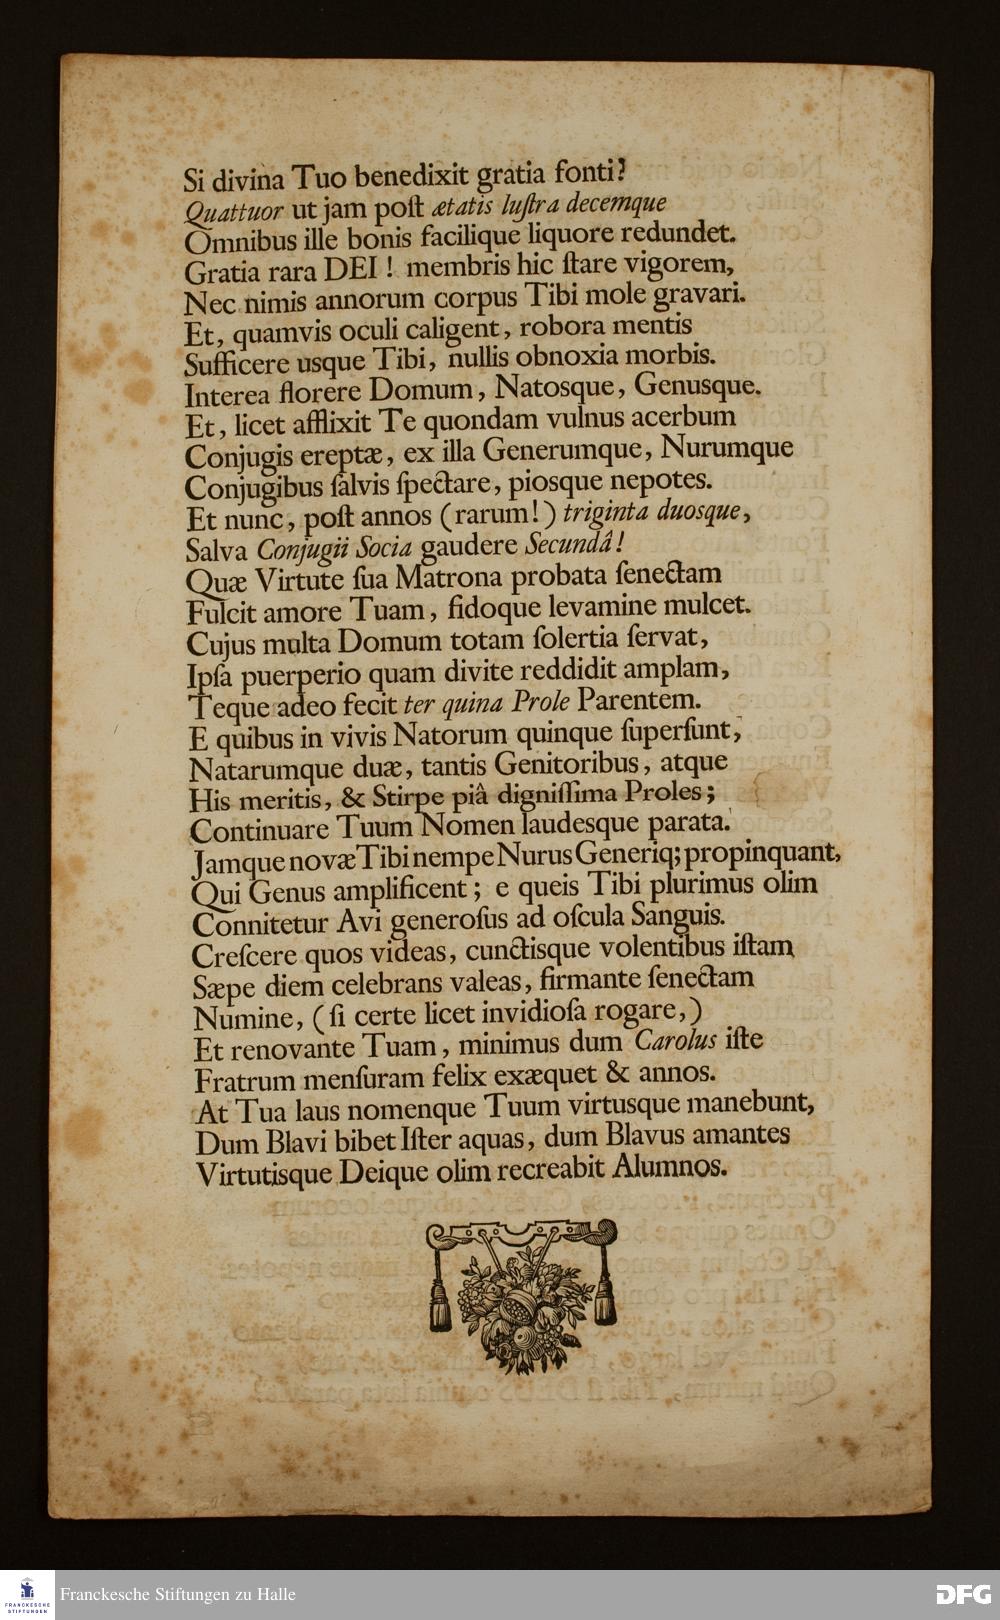 Si divina Tuo benedixit gratia fonti?
Quattuor ut jam poſt ætatis luſtra decemque
Omnibus ille bonis facilique liquore redundet.
Gratia rara DEI! membris hic ſtare vigorem,
Nec nimis annorum corpus Tibi mole gravari.
Et, quamvis oculi caligent, robora mentis
Sufficere usque Tibi, nullis obnoxia morbis.
Interea florere Domum, Natosque, Genusque.
Et, licet afflixit Te quondam vulnus acerbum
Conjugis ereptæ, ex illa Generumque, Nurumque
Conjugibus ſalvis ſpectare, piosque nepotes.
Et nunc, poſt annos (rarum!) triginta duosque,
Salva Conjugii Socia gaudere Secundâ!
Quæ Virtute ſua Matrona probata ſenectam
Fulcit amore Tuam, fidoque levamine mulcet.
Cujus multa Domum totam ſolertia ſervat,
Ipſa puerperio quam divite reddidit amplam,
Teque adeo fecit ter quina Prole Parentem.
E quibus in vivis Natorum quinque ſuperſunt,
Natarumque duæ, tantis Genitoribus, atque
His meritis, & Stirpe piâ digniſſima Proles;
Continuare Tuum Nomen laudesque parata.
Jamque novæ Tibi nempe Nurus Generiq; propinquant,
Qui Genus amplificent; e queis Tibi plurimus olim
Connitetur Avi generoſus ad oſcula Sanguis.
Creſcere quos videas, cunctisque volentibus iſtam
Sæpe diem celebrans valeas, firmante ſenectam
Numine, (ſi certe licet invidioſa rogare,)
Et renovante Tuam, minimus dum Carolus iſte
Fratrum menſuram felix exæquet & annos.
At Tua laus nomenque Tuum virtusque manebunt,
Dum Blavi bibet Iſter aquas, dum Blavus amantes
Virtutisque Deique olim recreabit Alumnos.
FRANCKESCHE STIFTUNGEN
Franckesche Stiftungen zu Halle
DFG